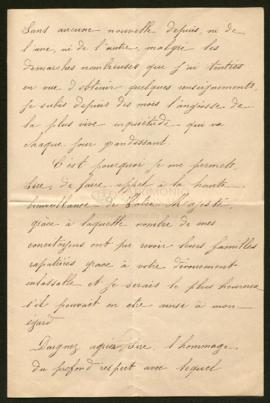 Sans aucune nouvelle depuis, ni de
l'une, ni de l'autre, malgré les
démarches nombreuses que j'ai tentées
en vue d'obtenir quelques renseignements,
je subis depuis des mois l'angoisse de
la plus vive inquiétude qui va
chaque jour grandissant.
C'est pourquoi je me permets,
Sire, de faire appel à la haute
bienveillance de Votre Majesté
grâce à laquelle nombre de mes
concitoyens ont pu revoir leurs familles
rapatriées grâce à votre dévouement
inlassable et je serais le plus heureux
s'il pouvait en être ainsi à mon
égard.
Daignez agréer, Sire, l'hommage
du profond respect avec lequel